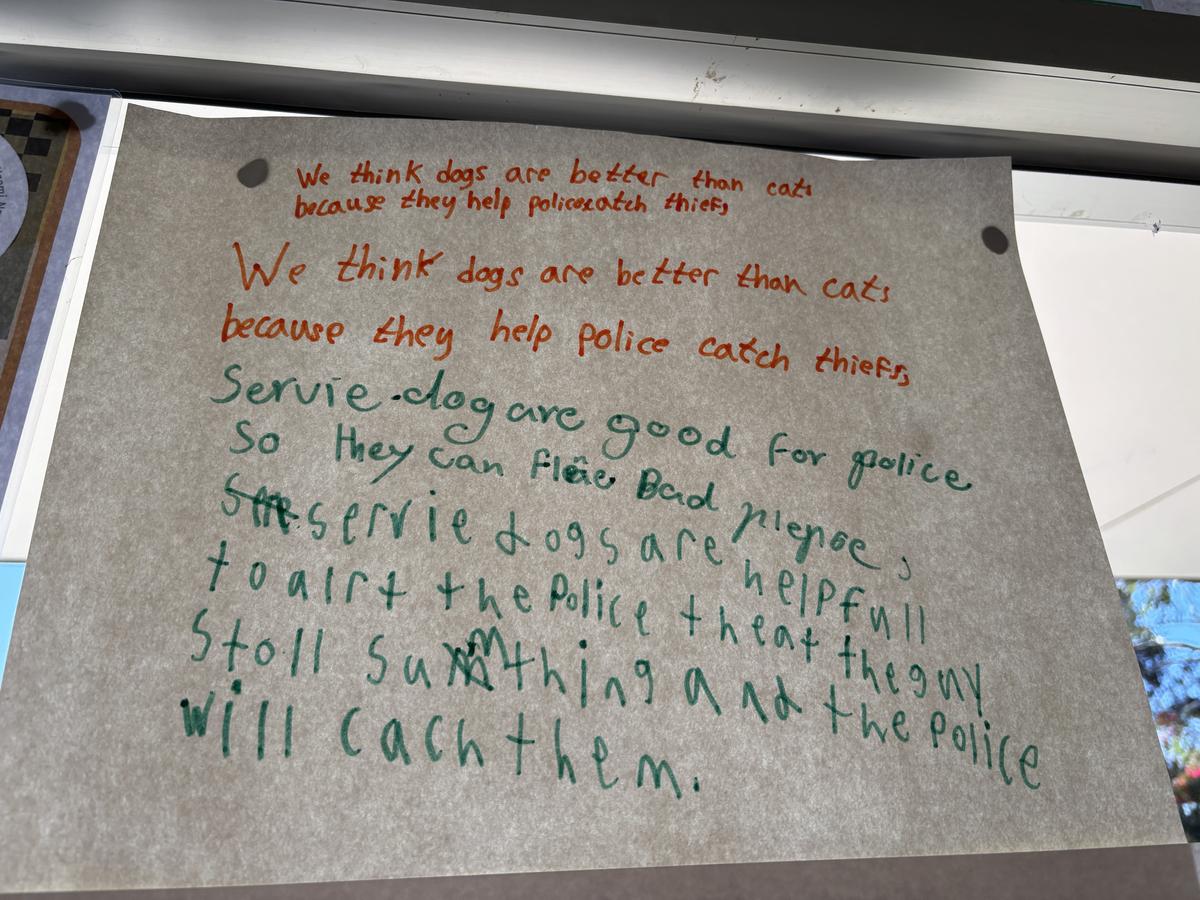 We think dogs are better than cats
because they help policescatch thiefs,
We think dogs are better than cats
because they help police catch thiefs,
Servie dog are good for police
So they can Bad
servie dogs are helpfull
to alrt the Police theat the guy
Stoll Sumthing and the Police
will cach them.